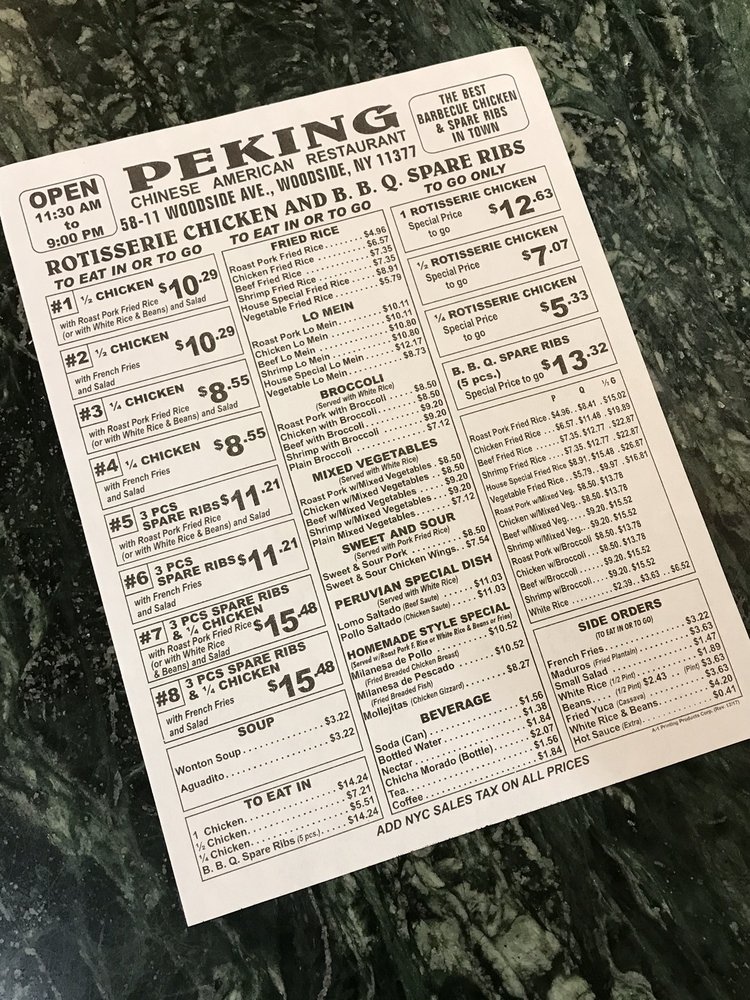 OPEN
11:30 AM
to
9:00 PM
PEKING
CHINESE AMERICAN RESTAURANT
58-11 WOODSIDE AVE., WOODSIDE, NY 11377
THE BEST
BARBECUE CHICKEN
& SPARE RIBS
IN TOWN
ROTISSERIE CHICKEN AND B. B. Q. SPARE RIBS
TO EAT IN OR TO GO
#1 ½ CHICKEN $10.29
with Roast Pork Fried Rice
(or with White Rice & Beans) and Salad
#2 ½ CHICKEN $10.29
with French Fries
and Salad
#3 ¼ CHICKEN $8.55
with Roast Pork Fried Rice
(or with White Rice & Beans) and Salad
#4 ¼ CHICKEN $8.55
with French Fries
and Salad
#5 3 PCS
SPARE RIBS $11.21
with Roast Pork Fried Rice
(or with White Rice & Beans) and Salad
#6 3 PCS
SPARE RIBS $11.21
with French Fries
and Salad
#7 3 PCS SPARE RIBS
& ¼ CHICKEN
with Roast Pork Fried Rice $15.48
(or with White Rice
& Beans) and Salad
#8 3 PCS SPARE RIBS
& ¼ CHICKEN $15.48
with French Fries
and Salad
SOUP
Wonton Soup $3.22
Aguadito $3.22
TO EAT IN
1 Chicken $14.24
½ Chicken $7.21
¼ Chicken $5.51
B. B. Q. Spare Ribs (5 pcs.) $14.24
TO EAT IN OR TO GO
FRIED RICE
Roast Pork Fried Rice $4.96
Chicken Fried Rice $6.57
Beef Fried Rice $7.35
Shrimp Fried Rice $7.35
House Special Fried Rice $8.91
Vegetable Fried Rice $5.79
LO MEIN
Roast Pork Lo Mein $10.11
Chicken Lo Mein $10.11
Beef Lo Mein $10.80
Shrimp Lo Mein $10.80
House Special Lo Mein $12.17
Vegetable Lo Mein $8.73
BROCCOLI
(Served with White Rice)
Roast Pork with Broccoli $8.50
Chicken with Broccoli $8.50
Beef with Broccoli $9.20
Shrimp with Broccoli $9.20
Plain Broccoli $7.12
MIXED VEGETABLES
(Served with White Rice)
Roast Pork w/Mixed Vegetables $8.50
Chicken w/Mixed Vegetables $8.50
Beef w/Mixed Vegetables $9.20
Shrimp w/Mixed Vegetables $9.20
Plain Mixed Vegetables $7.12
SWEET AND SOUR
(Served with Pork Fried Rice)
Sweet & Sour Pork $8.50
Sweet & Sour Chicken Wings $7.54
PERUVIAN SPECIAL DISH
(Served with White Rice)
Lomo Saltado (Beef Saute) $11.03
Pollo Saltado (Chicken Saute) $11.03
HOMEMADE STYLE SPECIAL
(Served w/Roast Pork F. Rice or White Rice & Beans or Fries)
Milanesa de Pollo $10.52
(Fried Breaded Chicken Breast)
Milanesa de Pescado $10.52
(Fried Breaded Fish)
Mollejitas (Chicken Gizzard) $8.27
BEVERAGE
Soda (Can) $1.56
Bottled Water $1.38
Nectar $1.84
Chicha Morado (Bottle) $2.07
Tea $1.56
Coffee $1.84
TO GO ONLY
1 ROTISSERIE CHICKEN
Special Price
to go $12.63
½ ROTISSERIE CHICKEN
Special Price
to go $7.07
¼ ROTISSERIE CHICKEN
Special Price
to go $5.33
B. B. Q. SPARE RIBS
(5 pcs.)
Special Price to go $13.32
P Q ½ G
Roast Pork Fried Rice $4.96 $8.41 $15.02
Chicken Fried Rice $6.57 $11.48 $19.89
Beef Fried Rice $7.35 $12.77 $22.87
Shrimp Fried Rice $7.35 $12.77 $22.87
House Special Fried Rice $8.91 $15.48 $26.87
Vegetable Fried Rice $5.79 $9.97 $16.81
Roast Pork w/Mixed Veg. $8.50 $13.78
Chicken w/Mixed Veg. $8.50 $13.78
Beef w/Mixed Veg. $9.20 $15.52
Shrimp w/Mixed Veg. $9.20 $15.52
Roast Pork w/Broccoli $8.50 $13.78
Chicken w/Broccoli $8.50 $13.78
Beef w/Broccoli $9.20 $15.52
Shrimp w/Broccoli $9.20 $15.52
White Rice $2.39 $3.63 $6.52
SIDE ORDERS
(TO EAT IN OR TO GO)
French Fries $3.22
Maduros (Fried Plantain) $3.63
Small Salad $1.47
White Rice (1/2 Pint) $1.89
Beans (1/2 Pint) $2.43 (Pint) $3.63
Fried Yuca (Cassava) $3.63
White Rice & Beans $4.20
Hot Sauce (Extra) $0.41
A-1 Printing Products Corp. (Rev. 12/17)
ADD NYC SALES TAX ON ALL PRICES